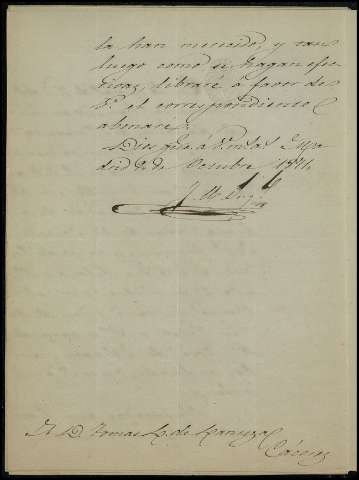 la han merecido, y tan
luego como se hagan efec
tivas, libraré a favor de
V. el correspondiente
abonaré.
Dios gue. á V. m. a. Ma
drid 2 de Octubre 1871
Sr. D. Tomas L. de
Cáceres